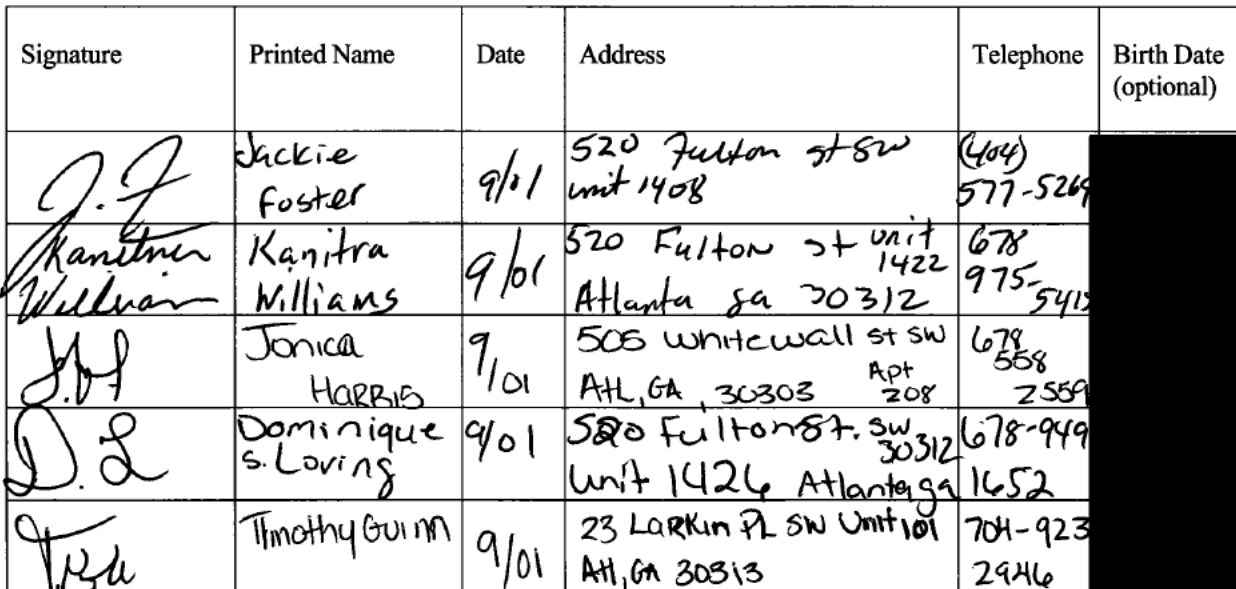 Signature Printed Name Date Address Telephone Birth Date
(optional)
J. F Jackie Foster 9/01 520 Fulton st SW unit 1408 (404) 577-5269
Kanitra Williams Kanitra Williams 9/01 520 Fulton st unit 1422 Atlanta ga 30312 678 975-5415
J.H Jonica HARRIS 9/01 505 Whitewall st SW Apt 208 ATL, GA, 30303 678 558 2559
D. L Dominique S. Loving 9/01 520 Fulton St. SW 30312 Unit 1426 Atlanta ga 678-949 1652
Timothy Guinn 9/01 23 LaRKin PL SW Unit 101 Atl, GA 30313 704-923 2946